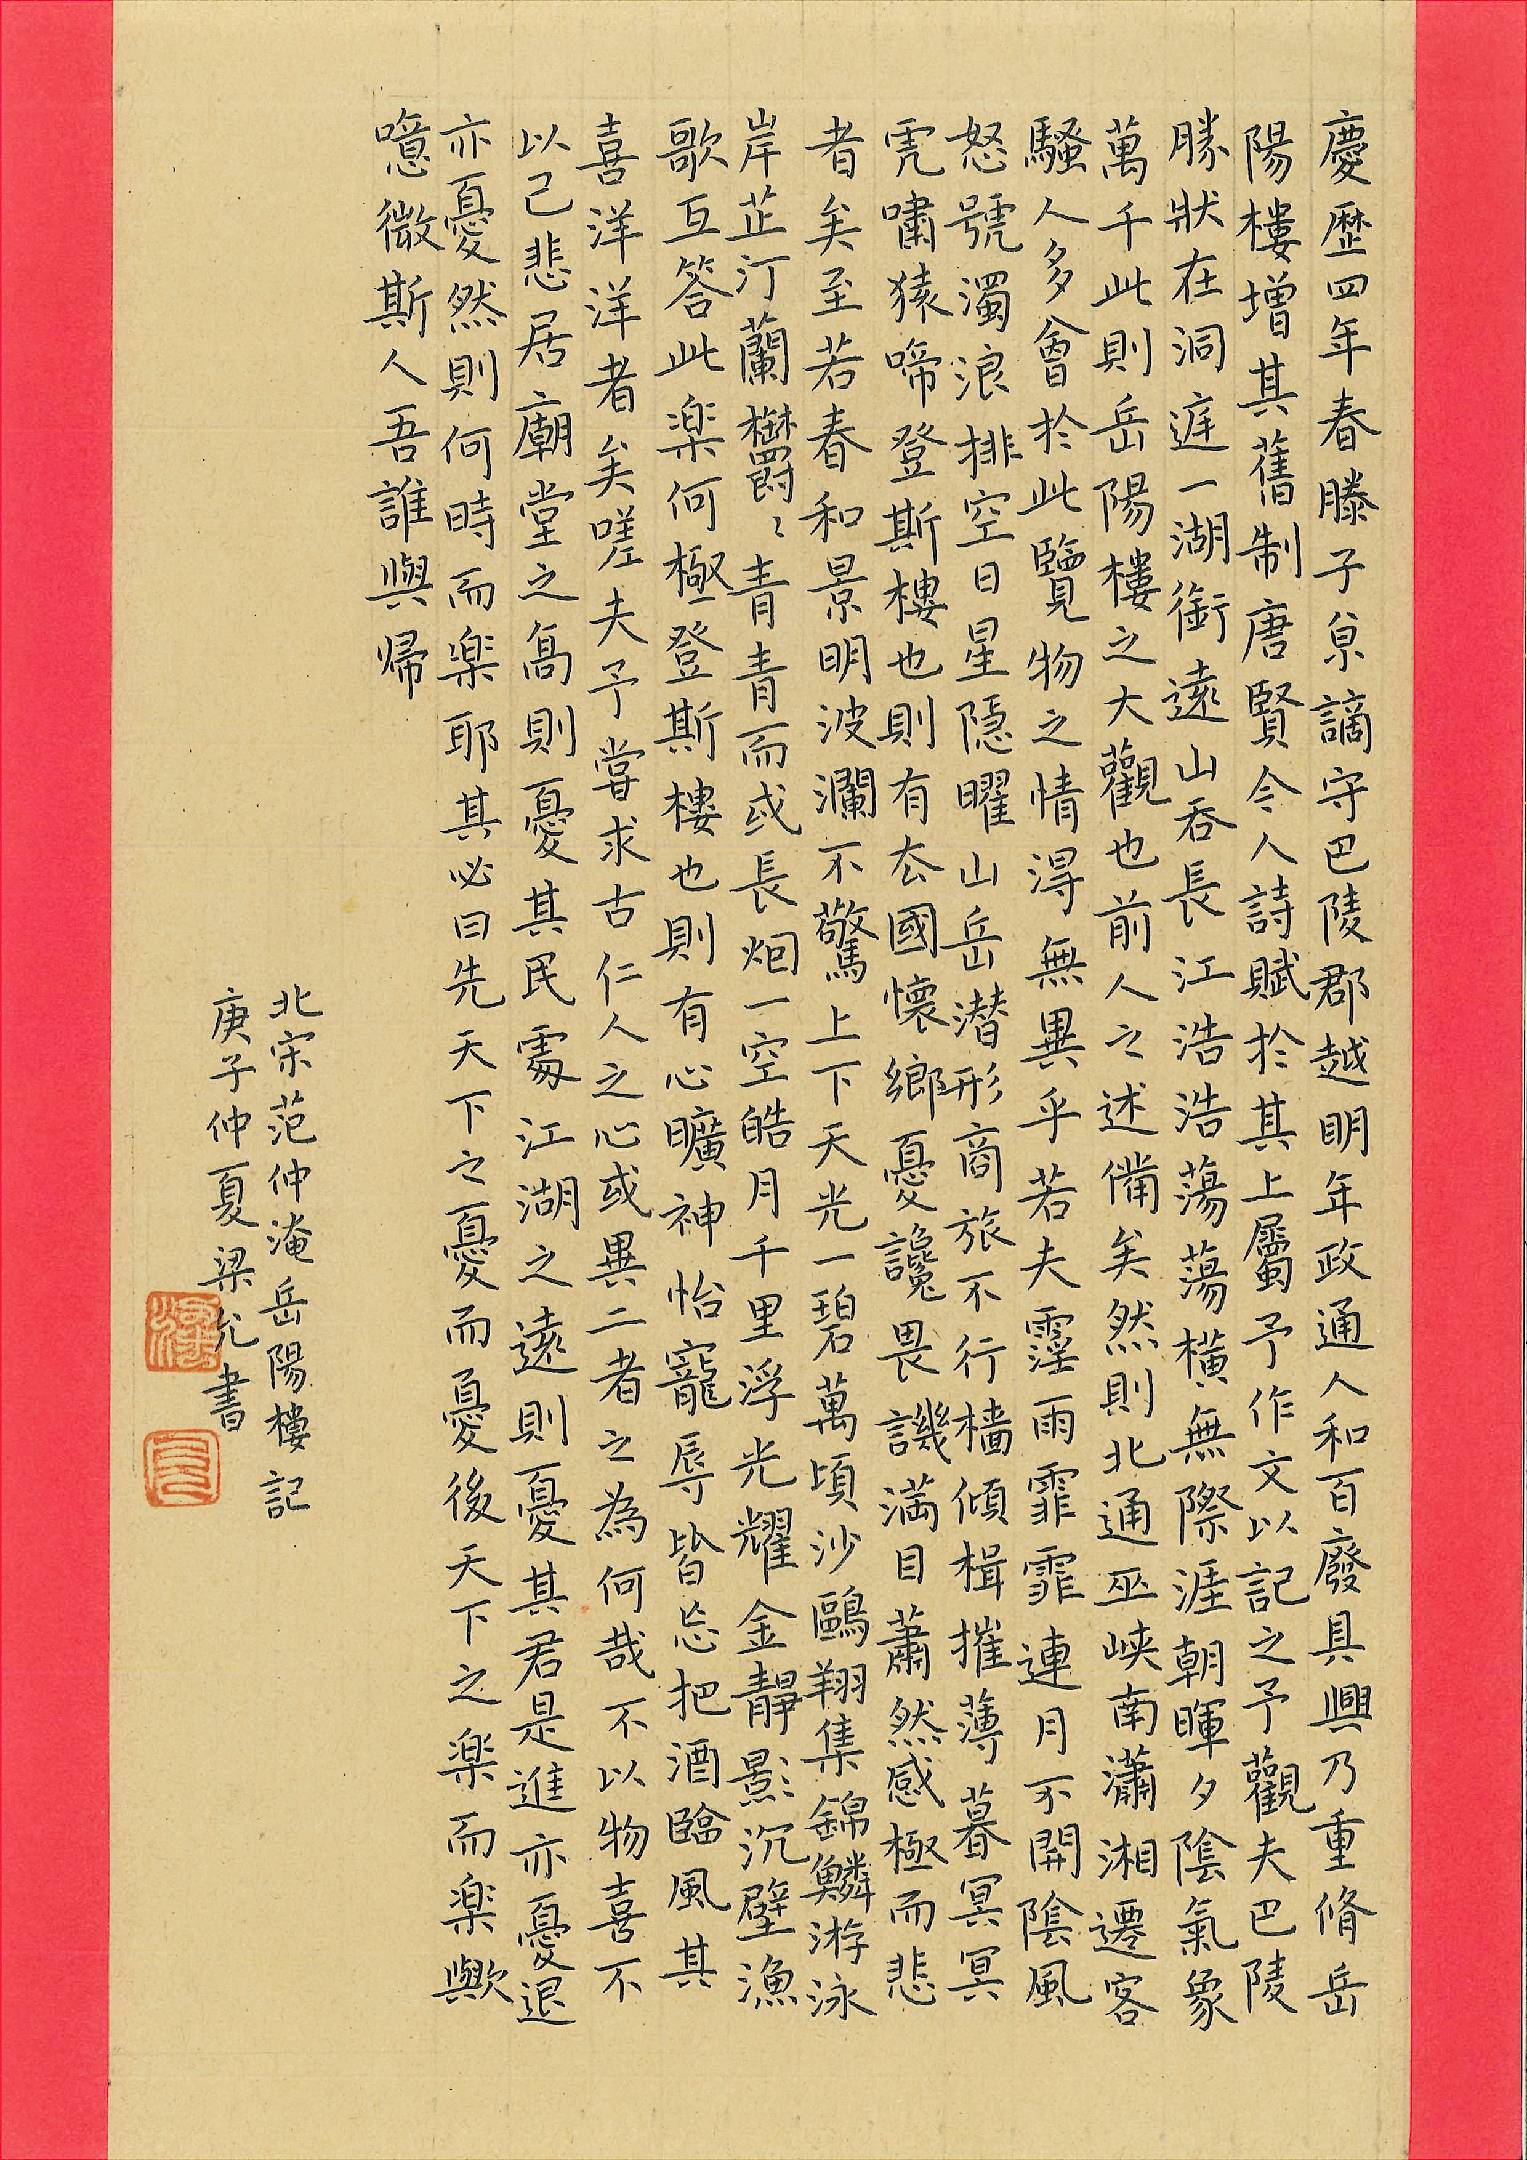 慶歷四年春滕子京謫守巴陵郡越明年政通人和百廢具興乃重脩岳
陽樓增其舊制唐賢今人詩賦於其上屬予作文以記之予觀夫巴陵
勝狀在洞庭一湖銜遠山吞長江浩浩蕩蕩橫無際涯朝暉夕陰氣象
萬千此則岳陽樓之大觀也前人之述備矣然則北通巫峽南瀟湘遷客
騷人多會於此覽物之情淂無異乎若夫霪雨霏霏連月不開陰風
怒號濁浪排空日星隱曜山岳潛形商旅不行檣傾楫摧薄暮冥冥
虎嘯猿啼登斯樓也則有去國懷鄉憂讒畏譏滿目蕭然感極而悲
者矣至若春和景明波瀾不驚上下天光一碧萬頃沙鷗翔集錦鱗游泳
岸芷汀蘭欝〻青青而或長烟一空皓月千里浮光耀金靜影沉壁漁
歌互答此楽何極登斯樓也則有心曠神怡寵辱皆忘把酒臨風其
喜洋洋者矣嗟夫予嘗求古仁人之心或異二者之為何哉不以物喜不
以己悲居廟堂之高則憂其民處江湖之遠則憂其君是進亦憂退
亦憂然則何時而楽耶其必曰先天下之憂而憂後天下之楽而楽歟
噫微斯人吾誰與歸
北宋范仲淹岳陽樓記
庚子仲夏梁允書